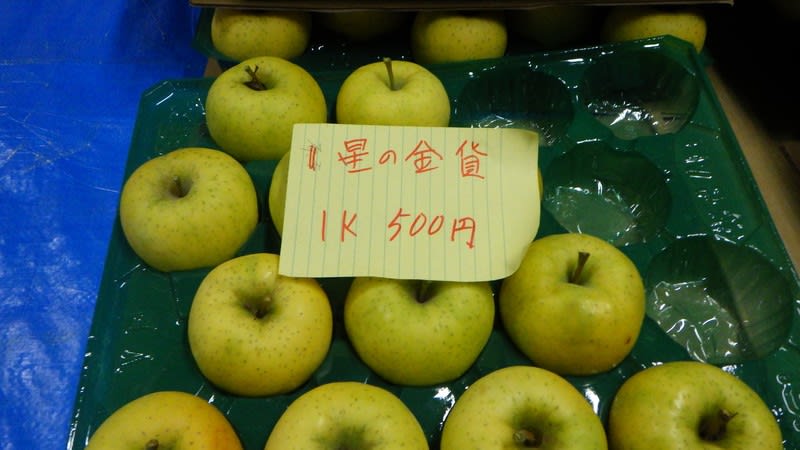 星の金貨
1K 500円